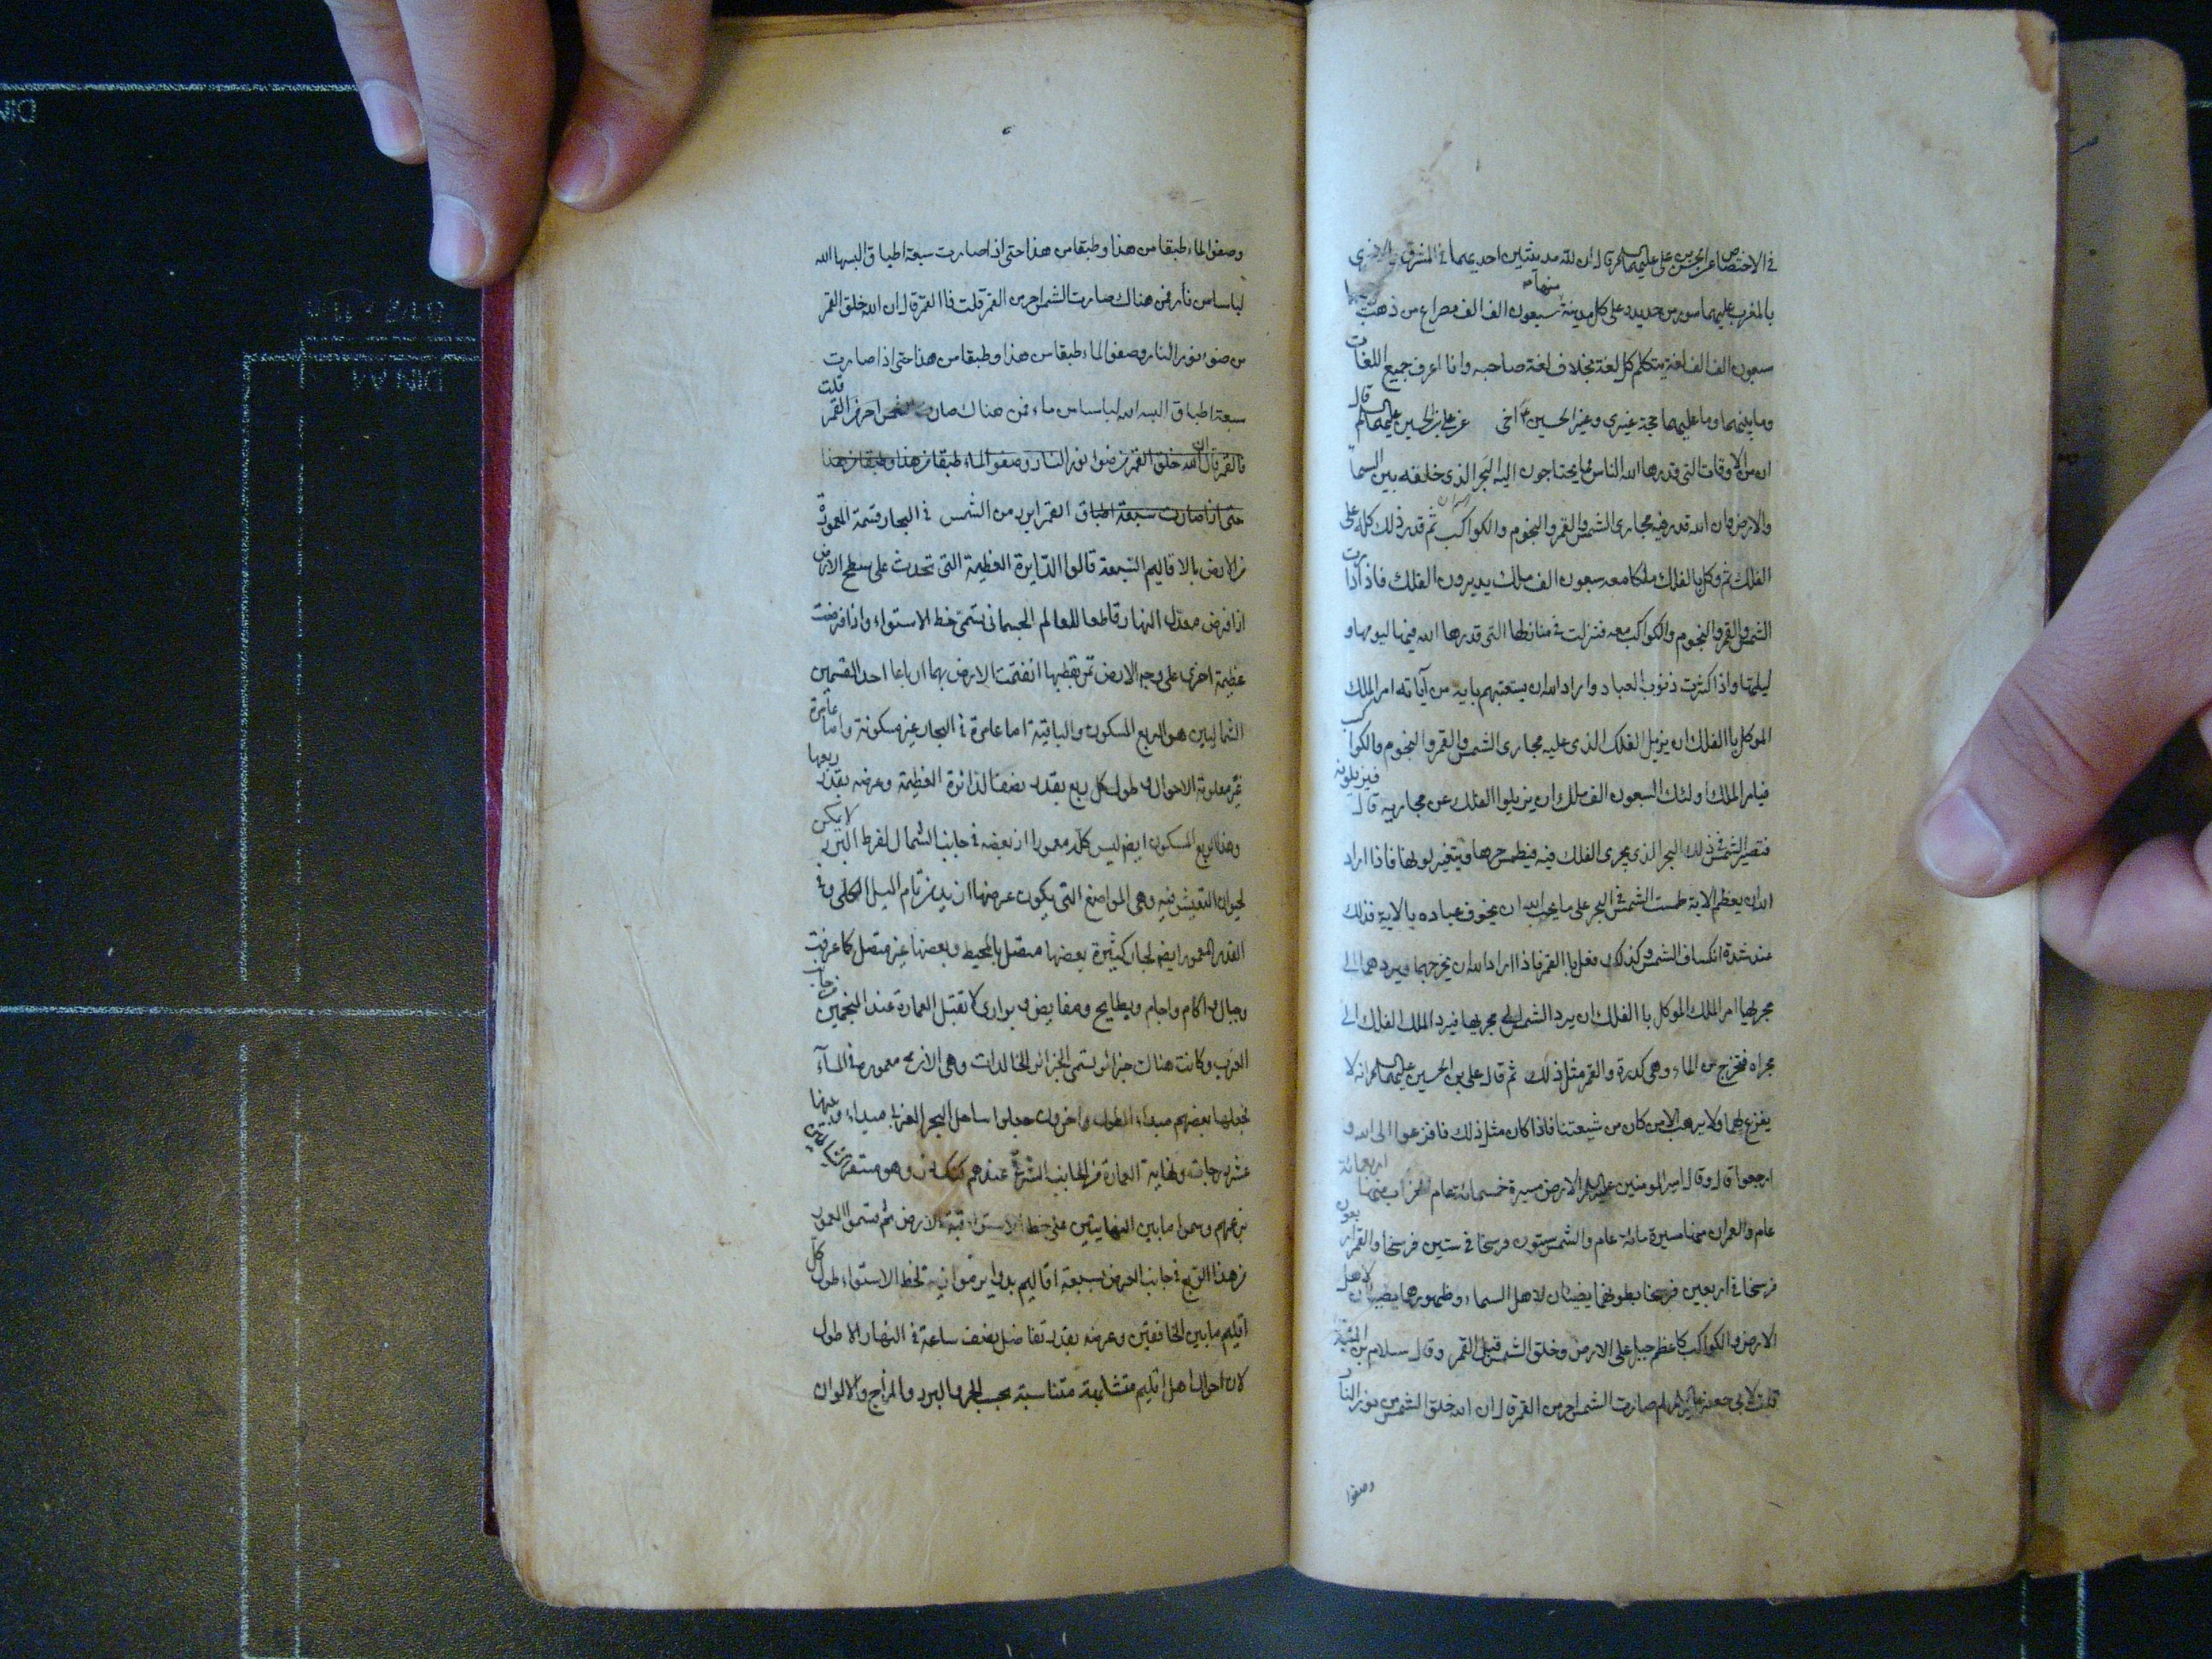 في الاختصاص عن الحسن بن علي عليهما السلام قال ان لله مدينتين احديهما في المشرق والاخرى
بالمغرب عليهما سور من حديد وعلى كل مدينة منهما سبعون الف الف مصراع من ذهب
سبعون الف الف لغة يتكلم كل لغة بخلاف لغة صاحبه وانا اعرف جميع اللغات
وما بينهما وما عليهما حجة غيري وغير الحسين اخي عن علي بن الحسين عليهما السلام قال
ان من الاوقات التي قدرها الله الناس مما يحتاجون اليه البحر الذي خلقه بين السماء
والارض وان الله قدر فيه مجاري الشمس والقمر والنجوم والكواكب ثم قدر ذلك كله على
الفلك ثم وكل بالفلك ملكا معه سبعون الف ملك يديرون الفلك فاذا دارت
الشمس والقمر والنجوم والكواكب معه فنزلت في منازلها التي قدرها الله فيها ليومها و
ليلتها واذا كثرت ذنوب العباد واراد الله ان يستعتبهم باية من آياته امر الملك
الموكل باالفلك ان يزيل الفلك الذي عليه مجاري الشمس والقمر والنجوم والكواكب
فيامر الملك اولئك السبعون الف ملك ان يزيلوا الفلك عن مجاريه قال فيزيلونه
فتصير الشمس في ذلك البحر الذي يجري الفلك فيه فيطمس حرها ويتغير لونها فاذا اراد
الله ان يعظم الاية طمست الشمس في البحر على ما يحب الله ان يخوف عباده بالاية فذلك
عند شدة انكساف الشمس وكذلك يفعل باالقمر فاذا اراد الله ان يخرجهما ويردهما الى
مجريها امر الملك الموكل باالفلك ان يرد الشمس الى مجريها فيرد الملك الفلك الى
مجراه فتخرج من الماء وهي كدرة والقمر مثل ذلك ثم قال علي بن الحسين عليهما السلام انه لا
يفزع لهما ولا يرهب الا من كان من شيعتنا فاذا كان مثل ذلك فافزعوا الى الله و
ارجعوا قال وقال امير المومنين عليه السلام الارض مسيرة خمسمائة عام الخراب منها اربعمائة
عام والعمران منها مسيرة مائة عام والشمس ستون فرسخا في ستين فرسخا والقمر اربعون
فرسخا في اربعين فرسخا بطونهما يضيئان لاهل السماء وظهورهما يضيئان لاهل
الارض والكواكب كاعظم جبل على الارض وخلق الشمس قبل القمر وقال سلام بن المستنير
قلت لابي جعفر عليه السلام لم صارت الشمس احر من القمر قال ان الله خلق الشمس من نور النار
وصفوا
وصفو الماء طبقا من هذا وطبقا من هذا حتى اذا صارت سبعة اطباق البسها الله
لباسا من نار فمن هناك صارت الشمس احر من القمر قلت فاالقمر قال ان الله خلق القمر
من ضوء نور النار وصفو الماء طبقا من هذا وطبقا من هذا حتى اذا صارت
سبعة اطباق البسه الله لباسا من ماء فمن هناك صارت الشمس احر من القمر قلت
فالقمر قال ان الله خلق القمر من ضوء نور النار وصفو الماء طبقا من هذا وطبقا من هذا
حتى اذا صارت سبعة اطباق القمر ابرد من الشمس في البحار قسمة المعمورة
من الارض بالاقاليم السبعة قالوا الدايرة العظيمة التي تحدث على سطح الارض
اذا فرض معدل النهار قاطعا للعالم الجسماني تسمى خط الاستواء واذا فرضت
عظيمة اخرى على وجه الارض تمر بقطبيها انقسمت الارض بهما ارباعا احد القسمين
الشماليين هو الربع المسكون والباقية اما غامرة في البحار غير مسكونة واما عامرة
غير معلومة الاحوال وطول كل ربع بقدر نصف الدائرة العظيمة وعرضه بقدر ربعها
وهذا الربع المسكون ايضا ليس كله معمورا اذ بعضه في جانب الشمال لفرط البرد لا يمكن
لحيوان التعيش فيه وهي المواضع التي يكون عرضها ازيد من تمام الميل الكلي وفي
القدر المعمور ايضا بحار كثيرة بعضها متصل بالمحيط وبعضها غير متصل كما عرفت
وجبال واكام واجام وبطايح ومغايض وبراري لا تقبل العمارة عند المنجمين من جانب
الغرب وكانت هناك جزائر تسمى الجزائر الخالدات وهي الان مغمورة في المآء
فجعلها بعضهم مبداء الطول واخرون جعلوا ساحل البحر الغربي مبداء وبينهما
عشر درجات ونهاية العمارة من الجانب الشرقي عندهم كنكدز وهو مستقر الشياطين
بزعمهم وسموا ما بين النهايتين على خط الاستواء قبة الارض ثم قسموا المعمور
من هذا الربع في جانب العرض بسبعة اقاليم بدواير موازية لخط الاستواء طول كل
اقليم ما بين الخافقين وعرضه بقدر تفاضل نصف ساعة في النهار الاطول
لان احوال اهل اقليم متشابهة متناسبة بحسب الحر والبرد والمزاج والالوان